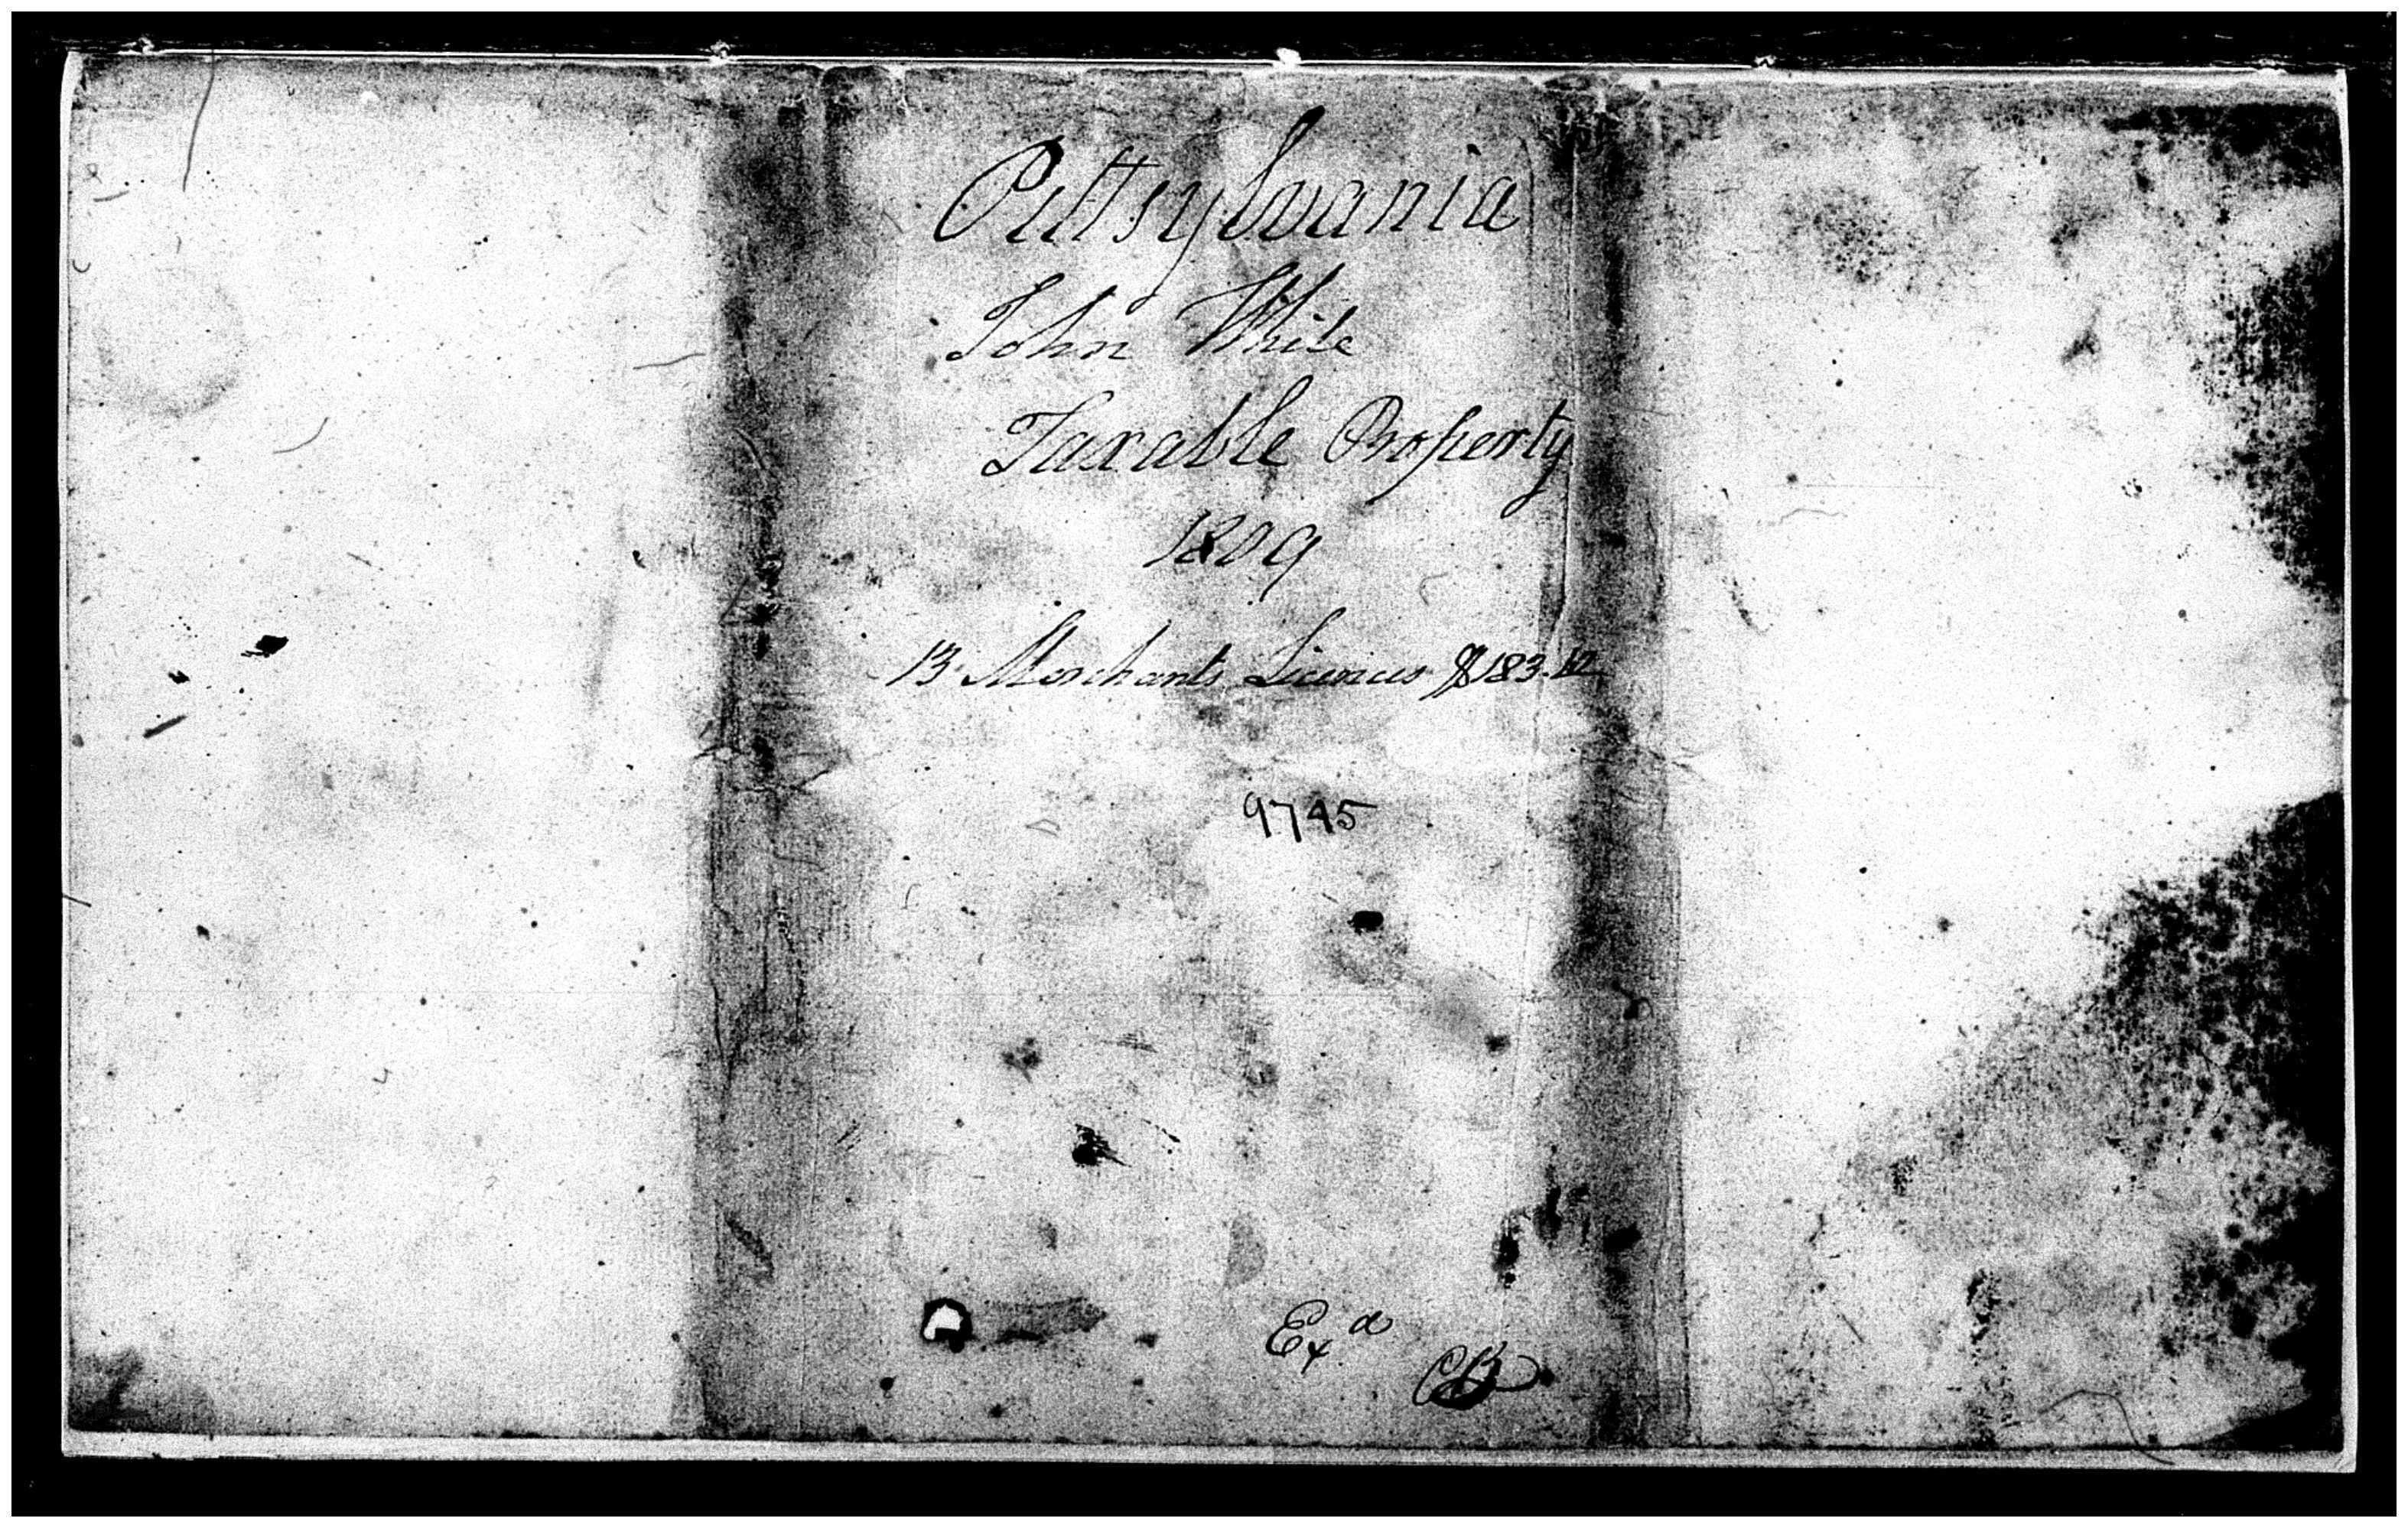 Pittsylvania
John White
Taxable Property
1809
13 Merchants Licences $183.12
9745
Exd
CB